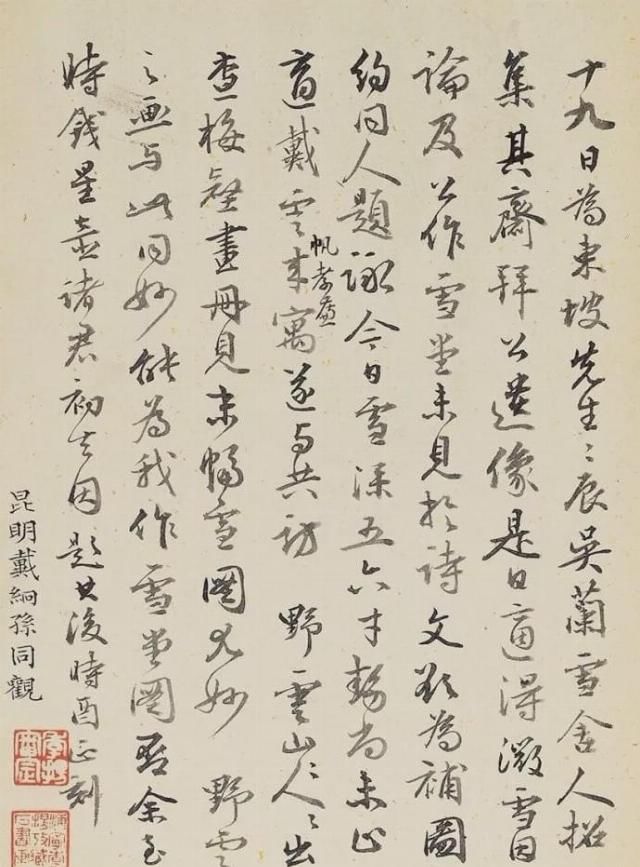 十九日為東坡先生〻辰吳蘭雪舍人招
集其齋拜公遺像是日適得微雪因
論及公作雪堂未見於詩文欲為補圖
約同人題詠今日雪深五六寸勢尚未止
適戴雲帆孝廉来寓遂与共訪野雲山人〻出
查梅壑畫冊見末幅雪圖尤妙野雲
之画与此同妙能為我作雪堂圖否余至
時錢星壺諸君初去因題其後時酉正刻
昆明戴絅孫同觀